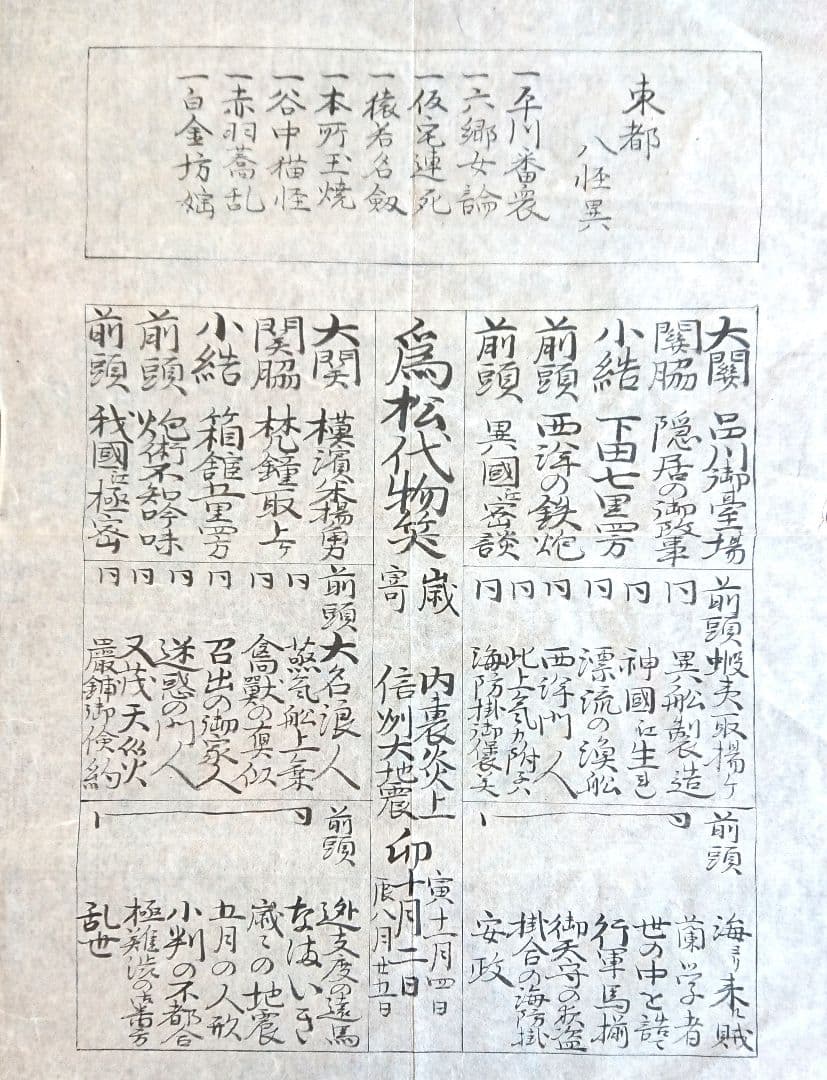 東都
八怪異
一平川番衆
一六郷女論
一仮宅連死
一猿若名剱
一本所玉焼
一谷中猫怪
一赤羽蕎乱
一白金坊婬
大關 品川御臺場
關脇 隠居の御政事
小結 下田七里四方
前頭 西洋の鉄炮
前頭 異國江密談
前頭 蝦夷取揚ケ
同 異舩製造
同 神國江生れ
同 漂流の漁舩
同 西洋門人
同
同 海防掛御褒美
前頭 海より来ル賊
蘭学者
世の中を
行軍馬揃
御天守の
掛合の海防掛
安政
為松代物笑
歳
寄
内裏炎上
信州大地震
寅十一月四日
卯十月二日
辰八月廿五日
大関
関脇 梵鐘取上ケ
小結 箱舘五里四方
前頭 炮術不知吟味
前頭 我國江極密
前頭 大名浪人
同 蒸気舩上乗
同 禽獸の真似
同 召出の御家人
同 迷惑の門人
同 又茂天災火
同 嚴鋪御倹約
前頭
支度の遠馬
なまいき
歳々の地震
五月の人形
小判の不都合
極難渋の
乱世